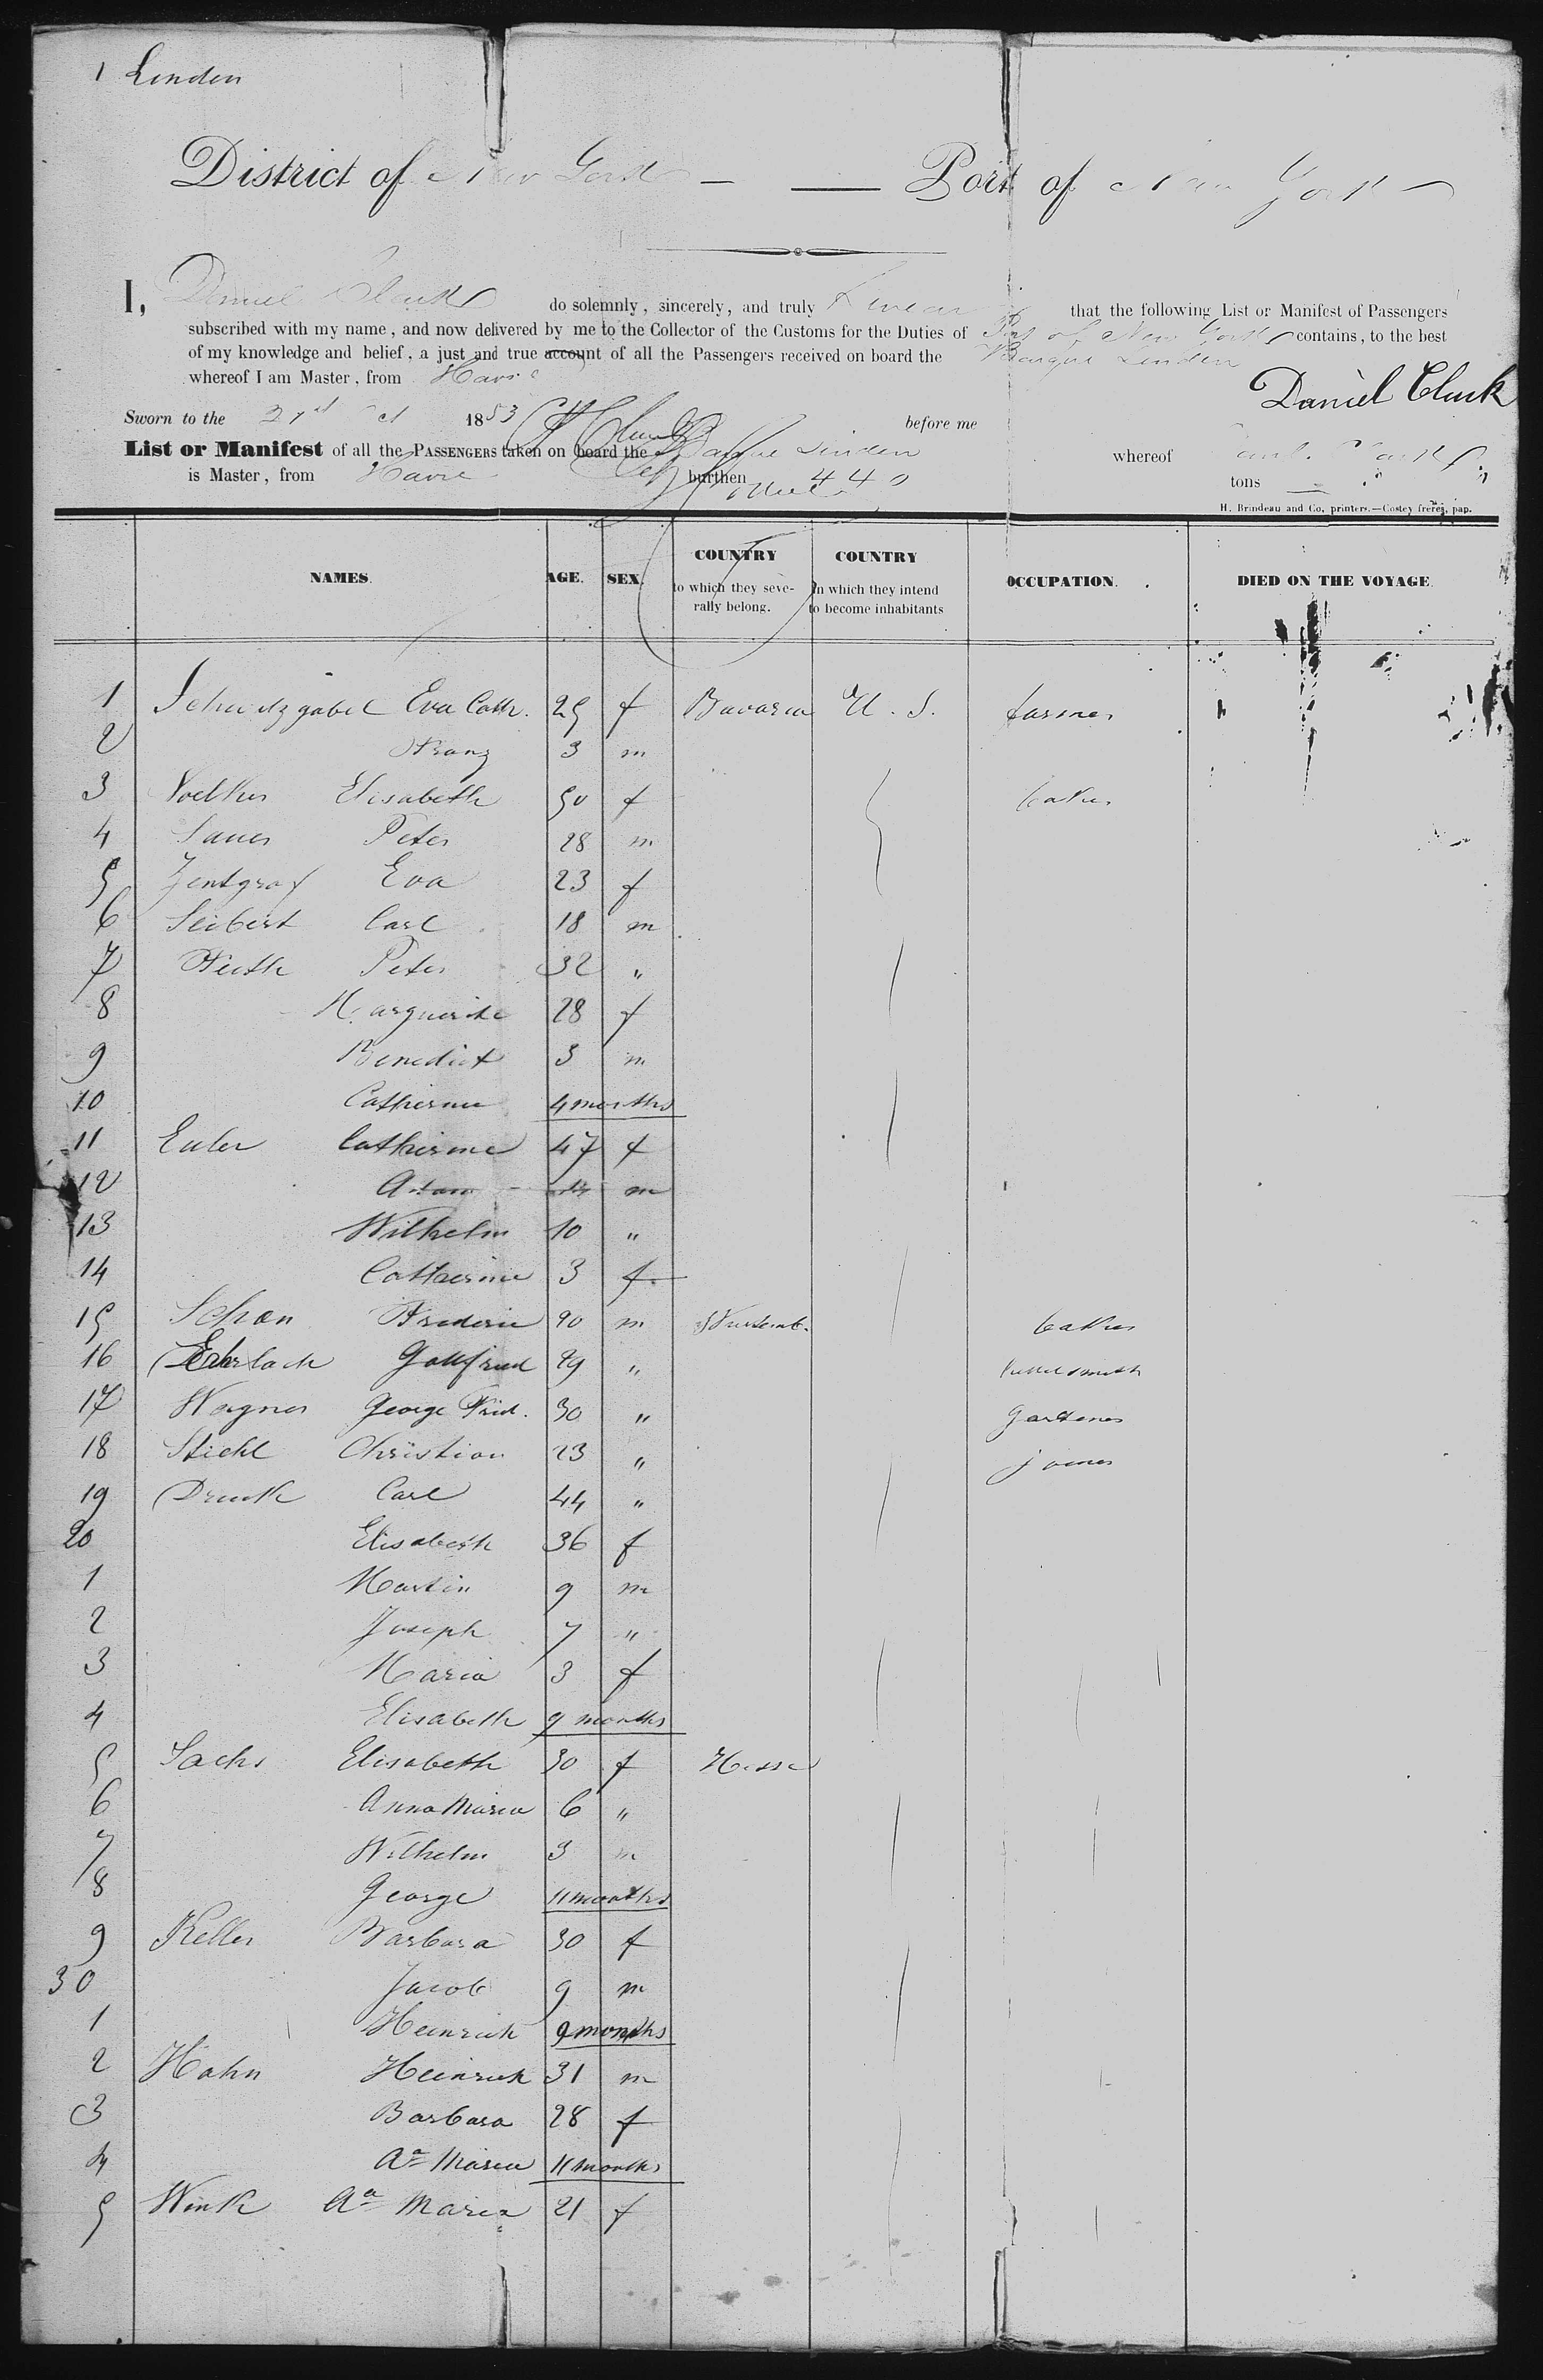 1 Linden
District of New York — — Port of New York
I, Daniel Clark do solemnly, sincerely, and truly swear that the following List or Manifest of Passengers
subscribed with my name, and now delivered by me to the Collector of the Customs for the Duties of Port of New York contains, to the best
of my knowledge and belief, a just and true account of all the Passengers received on board the Barque Linden
whereof I am Master, from Havre
Daniel Clark
Sworn to the 1853 before me
List or Manifest of all the PASSENGERS taken on board the Barque Linden whereof
is Master, from Havre burthen 440 tons
H. Brindeau and Co, printers.—Costey frères, pap.
NAMES. AGE. SEX. COUNTRY to which they seve- COUNTRY in which they intend OCCUPATION. DIED ON THE VOYAGE.
rally belong. to become inhabitants
1 Eva Cath. 25 f Bavaria U. S. farmer
2 Franz 3 m
3 Voelker Elisabeth 50 f baker
4 Sauer Peter 28 m
5 Zentgraf Eva 23 f
6 Seibert Carl 18 m
7 Peter 32 "
8 Marguerite 28 f
9 Benedict 3 m
10 Catherine 4 months
11 Euler Catherine 47 f
12 Adam m
13 Wilhelm 10 "
14 Catherine 3 f
15 Schon Frederic m Wurtemb. baker
16 Gottfried 29 "
17 Wagner George Fried. 30 " gardener
18 Stiehl Christian 23 " joiner
19 Carl 44 "
20 Elisabeth 36 f
1 Martin 9 m
2 Joseph 7 "
3 Maria 3 f
4 Elisabeth 9 months
5 Sachs Elisabeth 30 f Hesse
6 Anna Maria 6 "
7 Wilhelm 3 m
8 George 11 months
9 Keller Barbara 30 f
30 Jacob 9 m
1 Heinrich 9 months
2 Hahn Heinrich 31 m
3 Barbara 28 f
4 Aa Maria 11 months
5 Wink Aa Maria 21 f